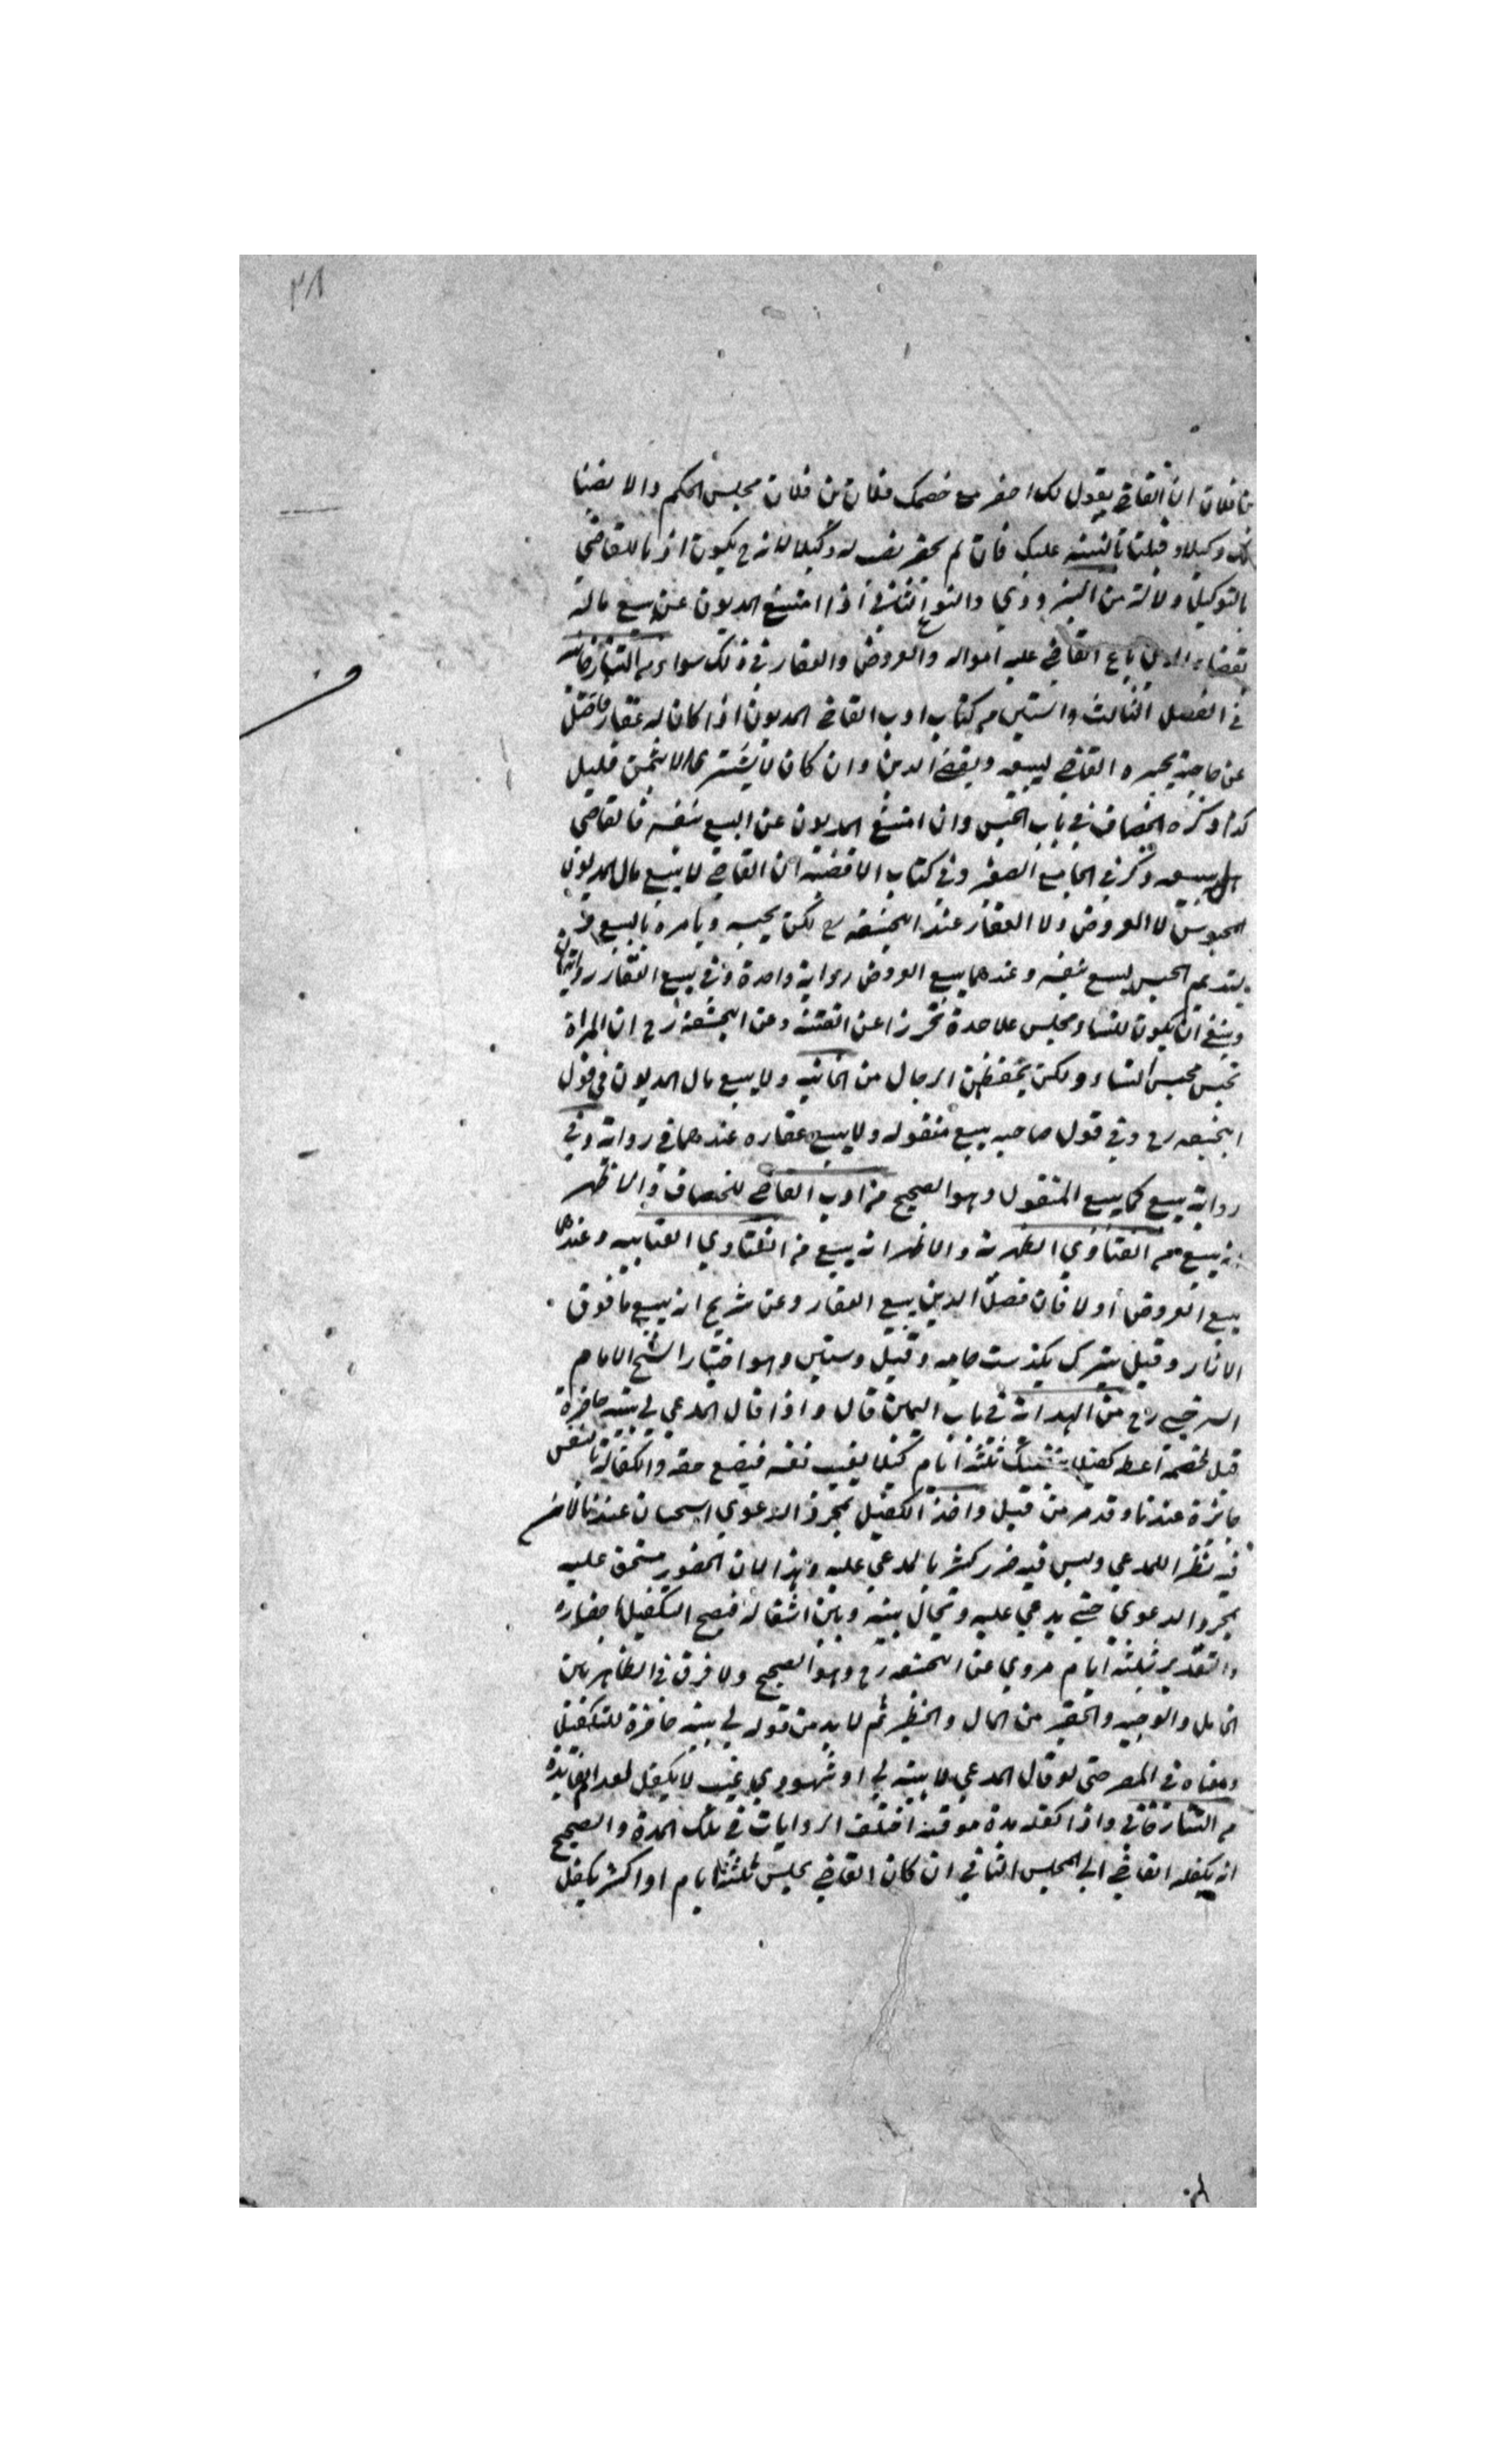 ٣٨
بن فلان ان القاضي يقول لك احضر مع خصمك فلان بن فلان مجلس الحكم والا نصبنا
لك وكيلا وقبلنا بالبينه عليك فان لم يحضر نصب له وكيلا لانه ح يكون اذنا للقاضي
بالتوكيل دلالة من البزدوي والنوع الثاني اذا امتنع المديون عن بيع ماله
لقضاء الدين باع القاضي عليه امواله والعروض والعقار في ذلك سواء من التتارخانيه
في الفصل الثالث والستين من كتاب ادب القاضي المديون اذا كان له عقار فاضل
عن حاجته يجبره القاضي ليبيعه ويقضي الدين وان كان لا يشتري الا بثمن قليل
كذا ذكره الخصاف في باب الحبس وان امتنع المديون عن البيع بنفسه فالقاضي
هل يبيعه ذكر في الجامع الصغير وفي كتاب الاقضية ان القاضي لا يبيع مال المديون
المحبوس لا العروض ولا العقار عند ابيحنيفه رح لكن يحبسه ويامره بالبيع
يستديم الحبس ليبيع بنفسه وعندهما يبيع العروض رواية واحدة وفي بيع العقار روايتان
وينبغي ان يكون للنساء مجلس علاحدة تحرزا عن الفتنة وعن ابيحنيفة رح ان المراة
تحبس محبس النساء ولكن يحفظهن الرجال من الخانيه ولا يبيع مال المديون في قول
ابيحنيفه رح وفي قول صاحبيه يبيع منقوله ولا يبيع عقاره عندهما في رواية وفي
رواية يبيع كما يبيع المنقول وهو الصحيح من ادب القاضي للخصاف والاظهر
انه يبيع من الفتاوي الظهرية والاظهر انه يبيع من الفتاوي العتابيه وعندهما
يبيع العروض أولا فان فضل الدين يبيع العقار وعن شريح انه يبيع ما فوق
الازار وقيل يترك بدست جامه وقيل دستين وهو اختيار الشيخ الامام
السرخسي رح من الهداية في باب اليمين قال واذا قال المدعي لي بينة حاضرة
قيل لخصمه اعط كفيلا بنفسك ثلثة ايام كيلا يغيب نفسه فيضيع حقه والكفالة بالنفس
جائزة عندنا وقد مر من قبل واخذ الكفيل بمجرد الدعوي استحسان عندنا لان
فيه نظرا للمدعي وليس فيه ضرر كثير بالمدعي عليه وهذا لان الحضور مستحق عليه
بمجرد الدعوي حتي يدعي عليه ويحال بينه وبين اشغاله فيصح التكفيل باحضاره
والتقدير بثلثة ايام مروي عن ابيحنيفه رح وهو الصحيح ولا فرق في الظاهر بين
الخامل والوجيه والحقير من المال والخطير ثم لا بد من قوله لي بينه حاضرة للتكفيل
ومعناه في المصر حتي لو قال المدعي لا بينة لي او شهودي غيب لا يكفل لعدم الفايدة
من التتارخاني واذا كفله مدة موقته اختلف الروايات في تلك المدة والصحيح
انه يكفله القاضي الي المجلس الثاني ان كان القاضي يجلس ثلثة ايام او اكثر يكفل